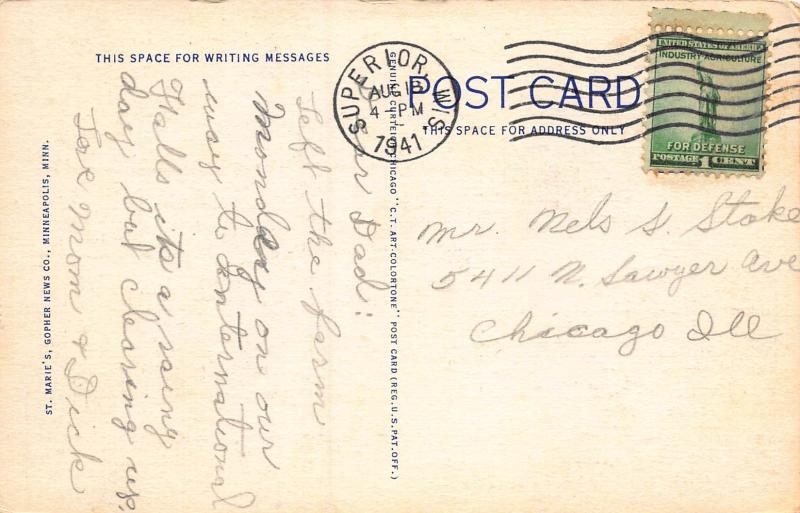 THIS SPACE FOR WRITING MESSAGES
POST CARD
THIS SPACE FOR ADDRESS ONLY
SUPERIOR, WIS.
AUG 18
4 PM
1941
UNITED STATES OF AMERICA
INDUSTRY-AGRICULTURE
FOR DEFENSE
POSTAGE 1 CENT
Dear Dad:
Left the farm
Monday on our
way to International
Falls its a rainy
day but clearing up.
Mom & Dick
Mr. Nels S. Stoke
5411 N. Sawyer Ave
Chicago Ill
GENUINE CURTEICH-CHICAGO "C.T. ART-COLORTONE" POST CARD (REG. U.S. PAT. OFF.)
ST. MARIE'S, GOPHER NEWS CO., MINNEAPOLIS, MINN.